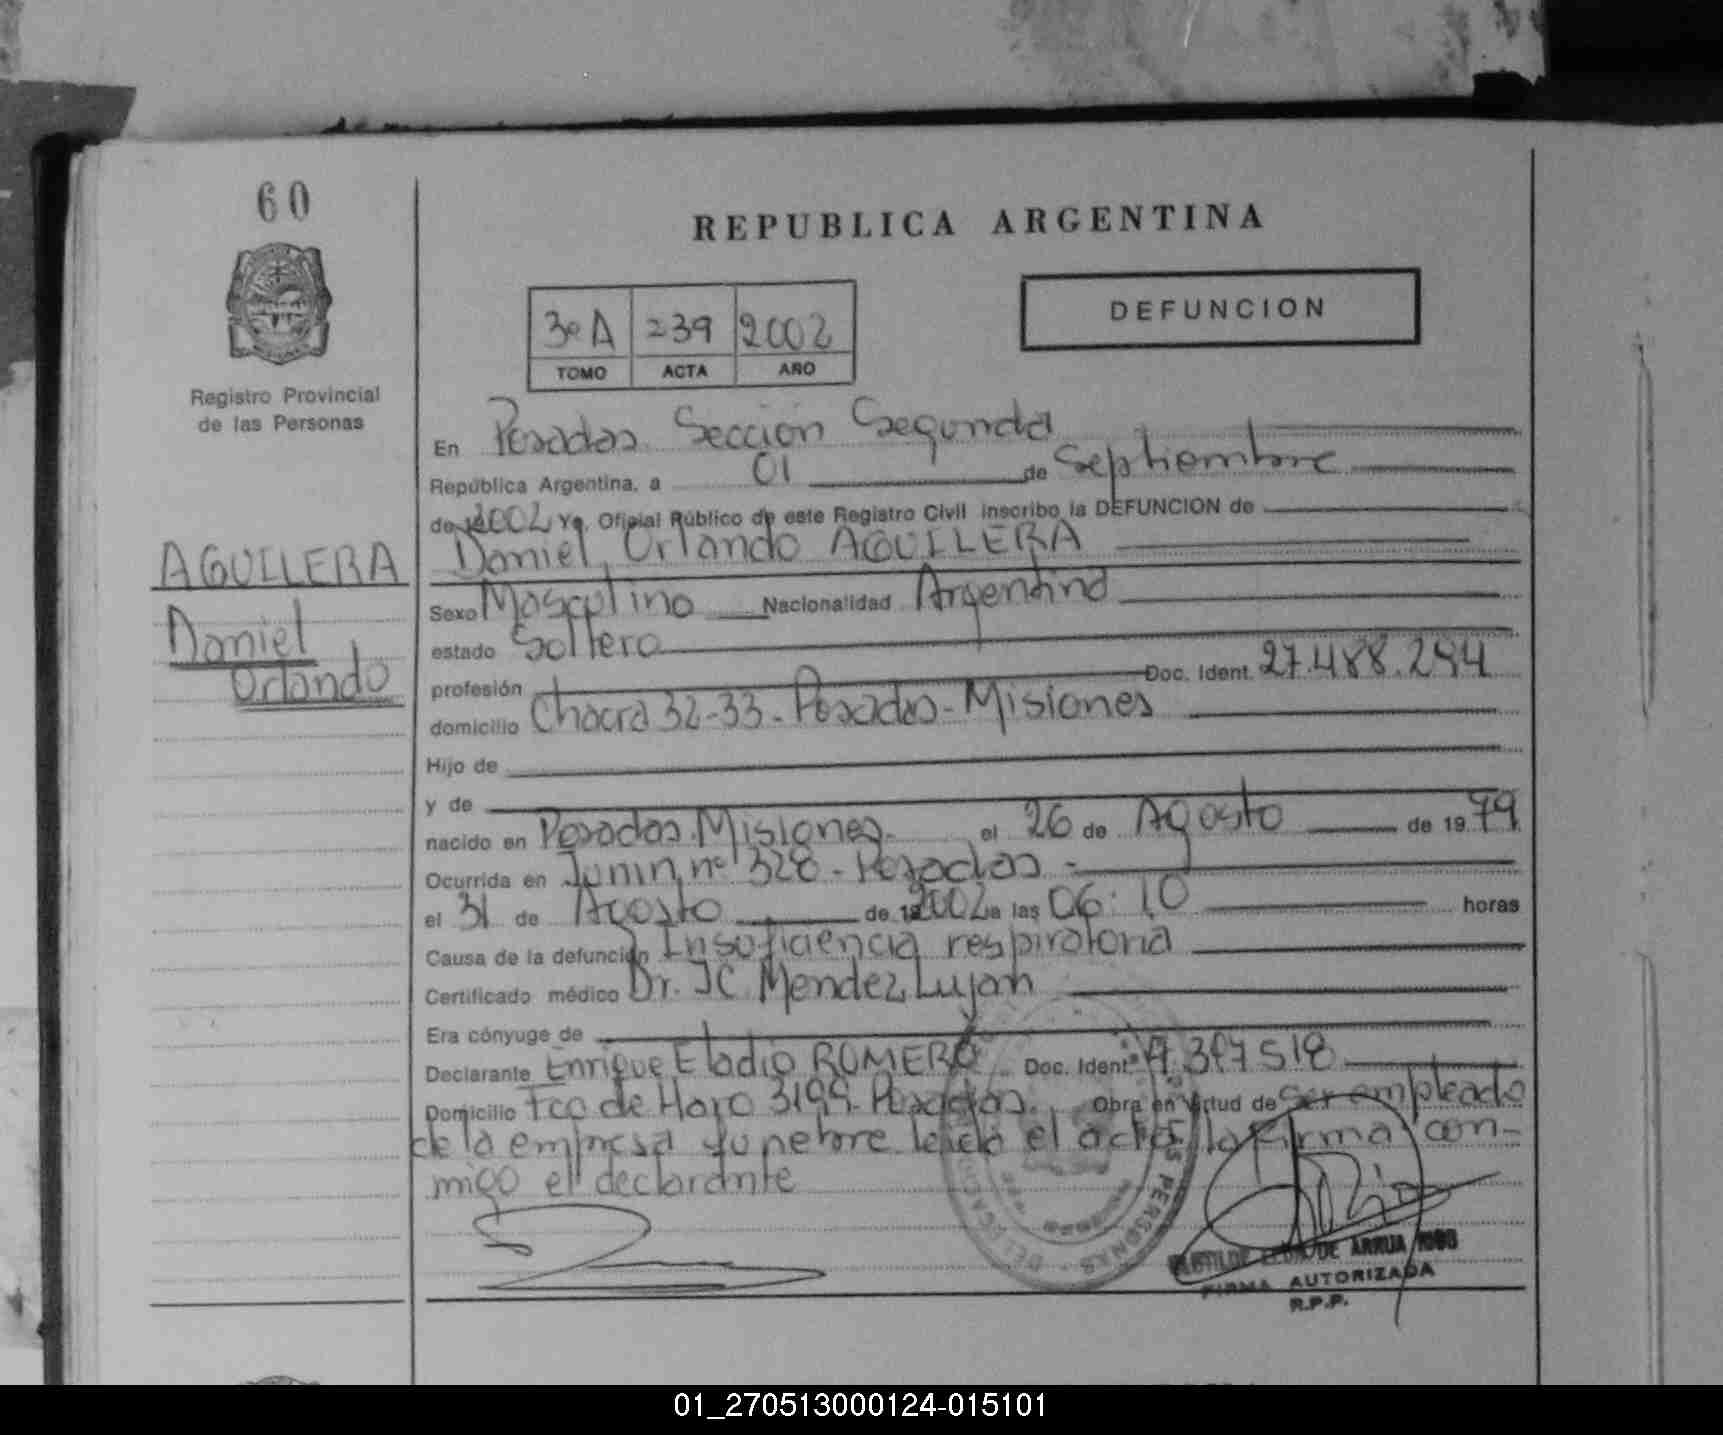 60
REPUBLICA ARGENTINA
DEFUNCION
3º A 239 2002
TOMO ACTA AÑO
Registro Provincial
de las Personas
En Posadas Sección Segunda
República Argentina, a 01 de Septiembre
de 2002 Yo, Oficial Público de este Registro Civil inscribo la DEFUNCION de
AGUILERA
Daniel
Orlando
Daniel Orlando AGUILERA
Sexo Masculino Nacionalidad Argentina
estado Soltero
profesión Doc. Ident. 27.488.294
domicilio Chacra 32-33-Posadas-Misiones
Hijo de
y de
nacido en Posadas.Misiones. el 26 de Agosto de 1979
Ocurrida en Junin nº 328-Posadas-
el 31 de Agosto de 2002 a las 06:10 horas
Causa de la defunción Insuficiencia respiratoria
Certificado médico Dr. JC Mendez Lujan
Era cónyuge de
Declarante Enrique Eladio ROMERO Doc. Ident.
Domicilio Fco de Haro 3199-Posadas. Obra en virtud de ser empleado
de la empresa funebre leida el acta la firma con-
migo el declarante
DE ARRUA
FIRMA AUTORIZADA
R.P.P.
01_270513000124-015101